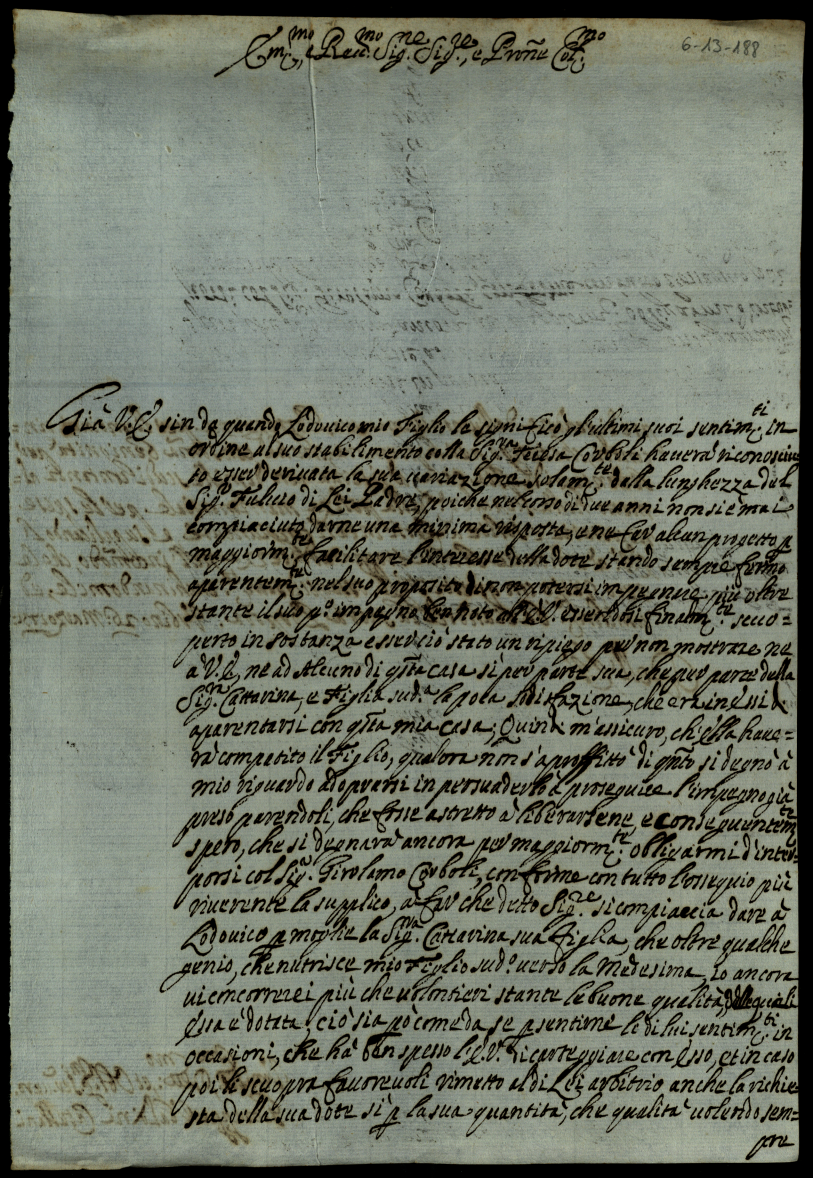 6-13-188
Em.mo, e Reu.mo Sig.ne Sig.re, e Prone Col.mo
Già V.E. sin da quando Lodouico mio Figlio la significò gl'ultimi suoi sentim.ti in
ordine al suo stabilimento colla Sig.ra Teresa Corboli hauerà riconosciu
to esser deriuata la sua uariazione solam.te dalla lunghezza del
Sig.r Fuluio di Lei Padre, poiche nel corso di due anni non si è mai
compiaciuto darne una minima risposta, e ne far alcun progetto p
maggiorm.te facilitare l'interesse della dote stando sempre fermo
aparentem.te nel suo proposito di non potersi impegnare più oltre
stante il suo p.o impegno ben noto all'E.V. essendosi finalm.te scuo-
perto in sostanza esser ciò stato un ripiego per non mostrare ne
a V.E, ne ad Alcuno di q.sta casa sì per parte sua, che per parte della
Sig.ra Cattarina, e Figlia sud.a la poca sodisfazione, che era in essi di
aparentarsi con q.sta mia casa; Quindi m'assicuro, ch'ella haue-
rà compatito il Figlio, qualora non s'aproffittò di q.nto si degnò à
mio riguardo adoprarsi in persuaderlo à proseguire l'impegno già
preso parendoli, che fosse astretto à liberarsene, e conseguentem.te
spero, che si degnarà ancora per maggiorm.te obligarmi d'inter-
porsi col Sig.r Girolamo Corboli, conforme con tutto l'ossequio più
riuerente la supplico, a far che detto Sig.re si compiaccia dare à
Lodouico p moglie la Sig.ra Cattarina sua Figlia, che oltre qualche
genio, che nutrisce mio Figlio sud.o uerso la Medesima, io ancora
ui concorrerei più che uolontieri stante le buone qualità, delle quali
essa è dotata; ciò sia però come da se p sentirne li di lui sentim.ti in
occasioni, che hà ben spesso l'E.V. di carteggiare con esso, et in caso
poi li scuopra fauoreuoli rimetto al di Lei arbitrio anche la richie-
sta della sua dote sì p la sua quantità, che qualità uolendo sem-
pre